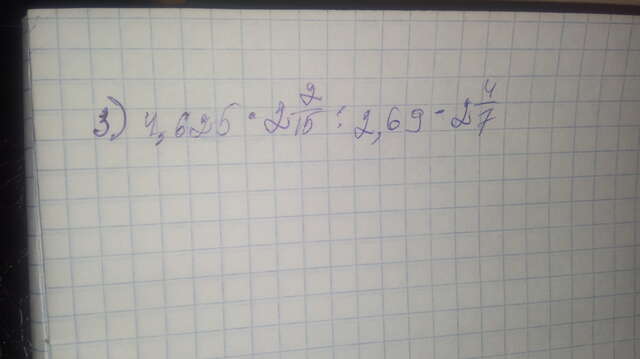 3) 4,625 · 2 2/15 : 2,69 - 2 4/7